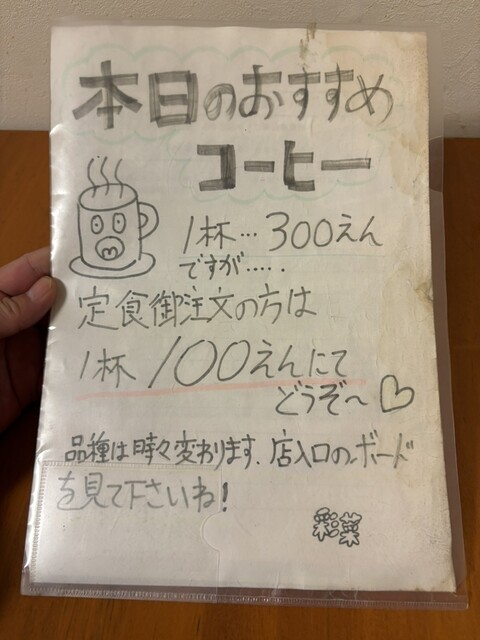 本日のおすすめ
コーヒー
1杯…300えん
ですが.....
定食御注文の方は
1杯 100えんにて
どうぞ〜♡
品種は時々変わります、店入口のボード
を見て下さいね!
彩菜